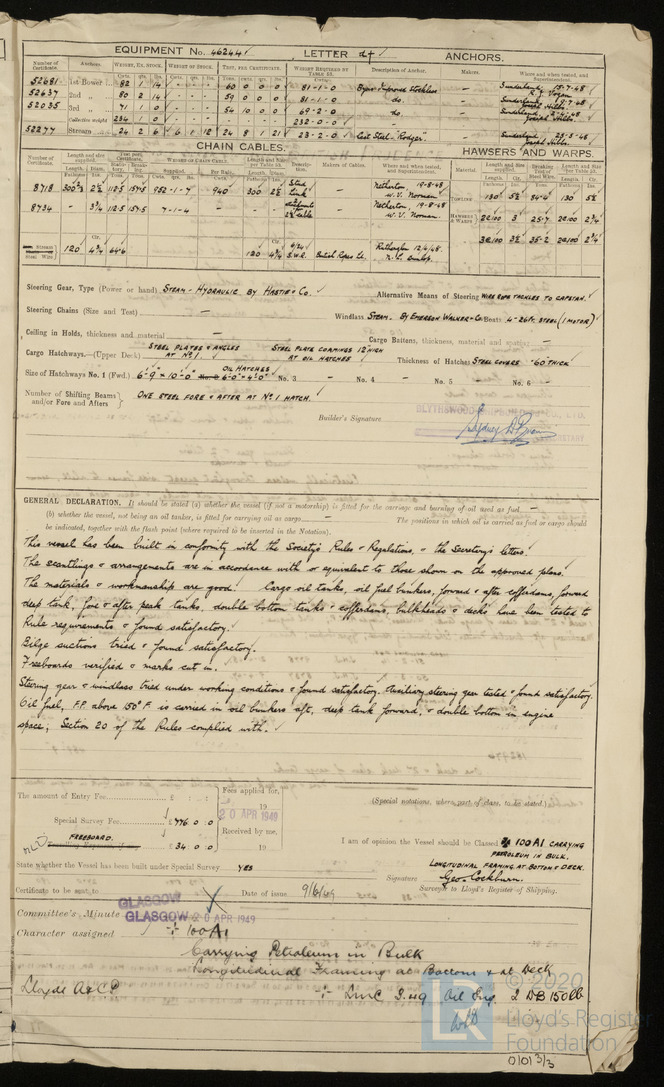 EQUIPMENT No. 46244 LETTER d† ANCHORS.
Number of Certificate. Anchors. WEIGHT, EX. STOCK. WEIGHT OF STOCK. TEST, PER CERTIFICATE. WEIGHT REQUIRED BY TABLE 23. Description of Anchor. Makers. Where and when tested, and Superintendent.
52681 1st Bower 82 1 14 - - - 60 0 0 0 81-1-0 Byers Improved Stockless - Sunderland, 15-7-48
52637 2nd „ 80 2 14 - - - 59 0 0 0 81-1-0 do. - Sunderland
52035 3rd „ 71 1 0 - - - 54 10 0 0 69-2-0 do. - Sunderland
Collective weight 234 1 0 232-0-0
52277 Stream 24 2 6 6 1 12 24 8 1 21 23-2-0 Cast Steel "Rodger". - Sunderland, 23-3-48
CHAIN CABLES. HAWSERS AND WARPS.
8718 300 2⅝ 112·5 157·5 952-1-7 940 300 2⅝ Stud Link - Netherton, 19-8-48 W. V. Norman. TOWLINE 130 5½ 130 5½
8734 - 3¼ 112·5 157·5 7-1-4 Netherton, 19-8-48 W. V. Norman. HAWSERS & WARPS 2@100 3 25·7 2@100 2¾
Stream Steel Wire 120 4¾ 64·6 120 4¾ 6/24 S.W.R. British Ropes Ld. Rutherglen 12/4/48. 3@100 3½ 35·2 2@100 2¾
Steering Gear, Type (Power or hand) STEAM - HYDRAULIC BY HASTIE & CO. Alternative Means of Steering WIRE ROPE TACKLES TO CAPSTAN.
Steering Chains (Size and Test) - Windlass STEAM. BY EMERSON WALKER & CO. Boats 4 - 26 FT. STEEL (1 MOTOR)
Ceiling in Holds, thickness and material - Cargo Battens, thickness, material and spacing -
Cargo Hatchways.-(Upper Deck) STEEL PLATES & ANGLES AT No 1. STEEL PLATE COAMINGS 12" HIGH AT OIL HATCHES Thickness of Hatches STEEL COVERS ·60" THICK
Size of Hatchways No. 1 (Fwd.) 6'-9" × 10'-0" OIL HATCHES 6'-0" × 4'-0" No. 3 - No. 4 - No. 5 - No. 6 -
Number of Shifting Beams and/or Fore and Afters } ONE STEEL FORE & AFTER AT No 1 HATCH.
Builder's Signature
GENERAL DECLARATION. It should be stated (a) whether the vessel (if not a motorship) is fitted for the carriage and burning of oil used as fuel -
(b) whether the vessel, not being an oil tanker, is fitted for carrying oil as cargo - The positions in which oil is carried as fuel or cargo should
be indicated, together with the flash point (where required to be inserted in the Notation).
This vessel has been built in conformity with the Society's Rules & Regulations, & the Secretary's letters.
The scantlings & arrangements are in accordance with or equivalent to those shown on the approved plans.
The materials & workmanship are good. Cargo oil tanks, oil fuel bunkers, forward & after cofferdams, forward
deep tank, fore & after peak tanks, double bottom tanks & cofferdams, bulkheads & decks have been tested to
Rule requirements & found satisfactory.
Bilge suctions tried & found satisfactory.
Freeboards verified & marks cut in.
Steering gear & windlass tried under working conditions & found satisfactory. Auxiliary steering gear tested & found satisfactory.
Oil fuel, F.P. above 150°F. is carried in oil bunkers aft, deep tank forward, & double bottom in engine
space; Section 20 of the Rules complied with.
The amount of Entry Fee £ : : Fees applied for, 19 (Special notations, where part of class, to be stated.)
20 APR 1949
Special Survey Fee £776 0 0 Received by me, I am of opinion the Vessel should be Classed ✠ 100 A1 CARRYING PETROLEUM IN BULK.
FREEBOARD. £ 34 0 0 19 LONGITUDINAL FRAMING AT BOTTOM & DECK.
State whether the Vessel has been built under Special Survey YES Signature Geo. Cockburn.
Surveyor to Lloyd's Register of Shipping.
Certificate to be sent to GLASGOW Date of issue 9/6/49
Committee's Minute GLASGOW 20 APR 1949
Character assigned ✠ 100A1
Carrying Petroleum in Bulk
Longitudinal Framing at Bottom & at Deck
Lloyds A&CP ✠ LMC 3.49 Oil Eng. 2 DB 150 lb
© 2020
LR
Lloyd's Register
Foundation